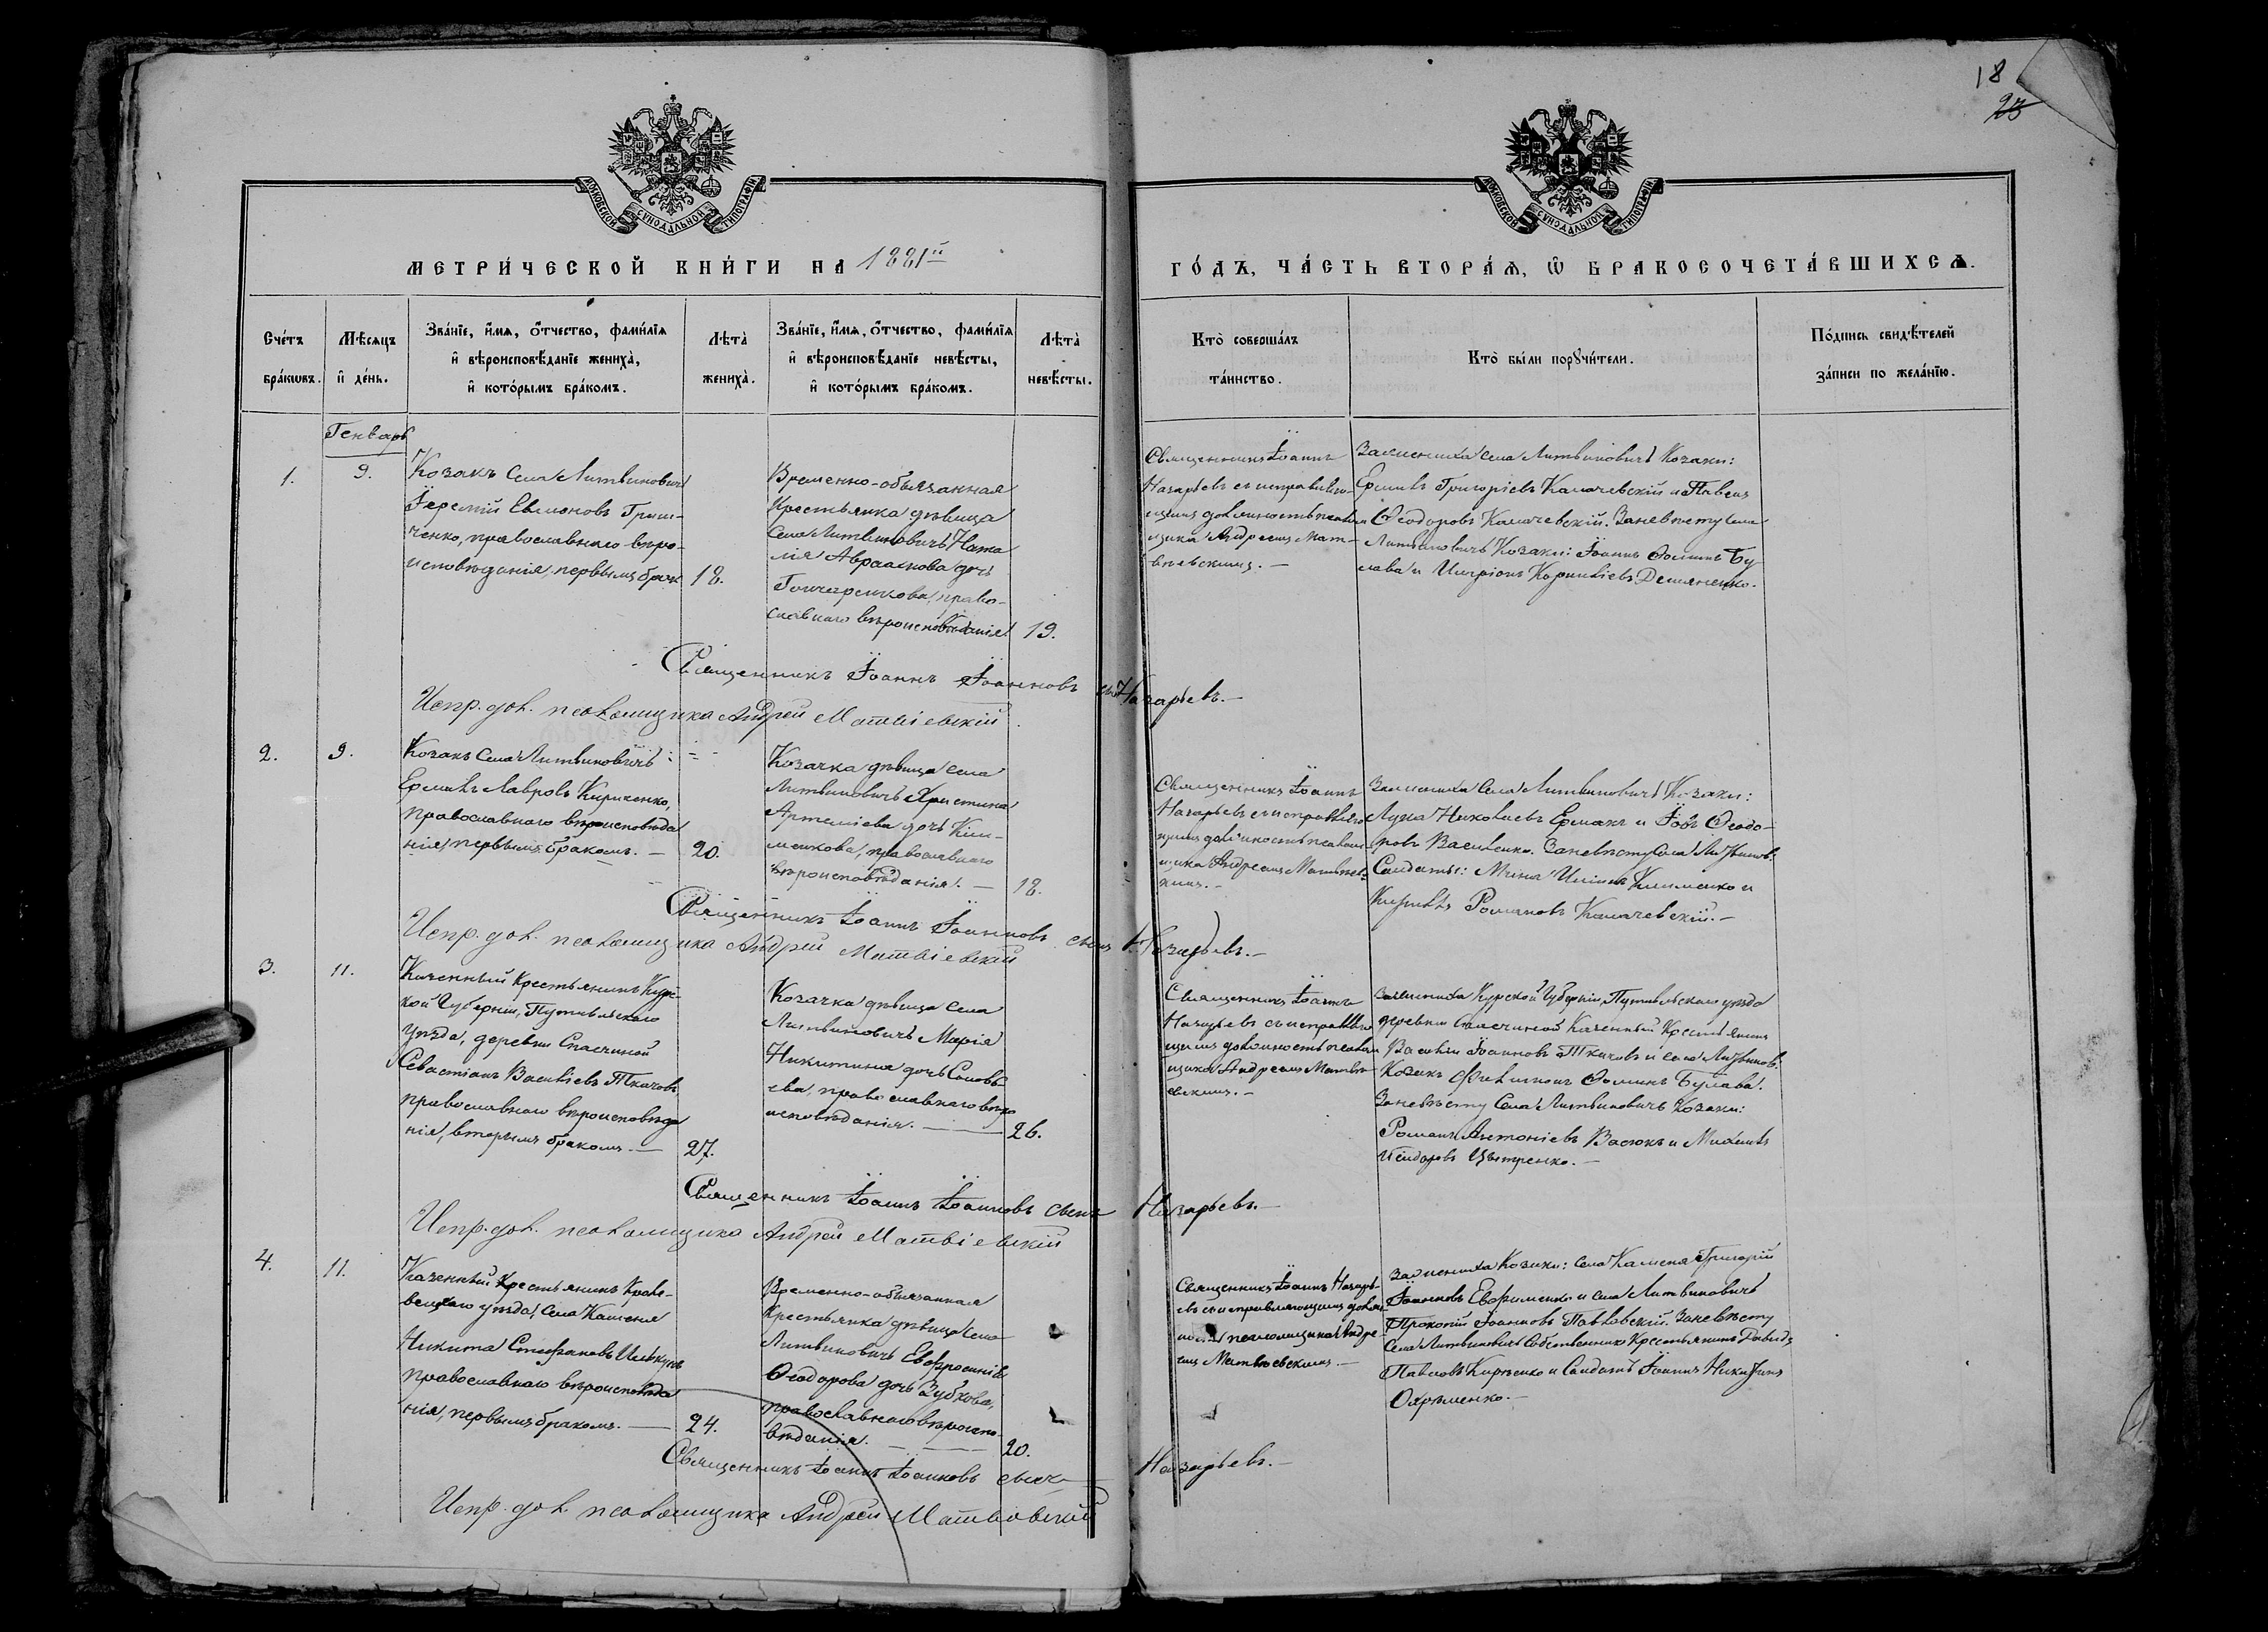 18
23
МОСКОВСКОЙ СУНОДАЛЬНОЙ ТИПОГРАФІИ
МОСКОВСКОЙ СУНОДАЛЬНОЙ ТИПОГРАФІИ
МЕТРИ́ЧЕСКОЙ КНИ́ГИ НА 1881й
ГО́ДЪ, ЧА́СТЬ ВТОРА́Ѧ, Ѿ БРАКОСОЧЕТА́ВШИХСѦ.
Сче́тъ бра́кѡвъ.
Мѣ́сяцъ и҆ де́нь.
Зва́нїе, и҆́мя, ѻ҆́тчество, фами́лїя
и҆ вѣроисповѣ́данїе жениха̀,
и҆ кото́рымъ бра́комъ.
Лѣта̀ жениха̀.
Зва́нїе, и҆́мя, ѻ҆́тчество, фами́лїя
и҆ вѣроисповѣ́данїе невѣ́сты,
и҆ кото́рымъ бра́комъ.
Лѣта̀ невѣ́сты.
Кто̀ соверша́лъ
та́инство.
Кто̀ бы́ли порꙋчи́тели.
По́дпись свидѣ́телей
за́писи по жела́нїю.
Генварь
1.
9.
Козакъ села Литвиновичъ
Іеремій Евменовъ Гриш-
ченко, православнаго вѣро-
исповѣданія, первымъ брак
18.
Временно-обязанная
крестьянка дѣвица
села Литвиновичъ Ната
лія Авраамова дочь
Гончаренкова, право-
славнаго вѣроисповѣданія
19.
Священникъ Іоаннъ
Назарьевъ съ исправляю-
щимъ должность псалом
щика Андреемъ Мат-
вѣевскимъ. —
За жениха села Литвиновичъ Козаки:
Ермилъ Григоріевъ Калачевскій и Павелъ
Ѳеодоровъ Калачевскій. За невѣсту села
Литвиновичъ Козаки: Іоаннъ Ѳоминъ Бу
лава и Иларіонъ Корниліевъ Демяненко.
Священникъ Іоаннъ Іоанновъ сынъ Назарьевъ. —
Испр. дол. псаломщика Андрей Матвіевскій
2.
9.
Козакъ села Литвиновичъ
Ермилъ Лавровъ Кириченко,
православнаго вѣроисповѣда
нія, первымъ бракомъ. —
20.
Козачка дѣвица села
Литвиновичъ Христина
Артеміева дочь Кли-
менкова, православнаго
вѣроисповѣданія. —
18.
Священникъ Іоаннъ
Назарьевъ съ исправляю
щимъ должность псалом
щика Андреемъ Матвѣев-
кимъ. —
За жениха села Литвиновичъ Козаки:
Лука Николаевъ Ермакъ и Іовъ Ѳеодо-
ровъ Василенко. За невѣсту села Литвинов.
Солдаты: Мина Клименко и
Кириллъ Романовъ Калачевскій. —
Священникъ Іоаннъ Іоанновъ сынъ Назарьевъ. —
Испр. дол. псаломщика Андрей Матвіевскій
3.
11.
Казенный крестьянинъ Кур-
кой Губерніи, Путивльскаго
уѣзда, деревни Спасчиной
Севастіанъ Василіевъ Ткачовъ,
православнаго вѣроисповѣда
нія, вторымъ бракомъ. —
27.
Козачка дѣвица села
Литвиновичъ Марія
Никитина дочь Соловь
ева, православнаго вѣро
исповѣданія. —
26.
Священникъ Іоаннъ
Назарьевъ съ исправляю
щимъ должность псалом
щика Андреемъ Матвѣ
евскимъ. —
За жениха Курской Губерніи, Путивльскаго уѣзда
деревни Спасчиной Казенный Крестьянинъ
Василій Іоанновъ Ткачовъ и села Литвинов.
Козакъ Филимонъ Ѳоминъ Булава.
За невѣсту села Литвиновичъ Козаки:
Романъ Антоніевъ Васюкъ и Михаилъ
Исидоровъ
Священникъ Іоаннъ Іоанновъ сынъ Назарьевъ. —
Испр. дол. псаломщика Андрей Матвіевскій
4.
11.
Казенный крестьянинъ Кроле-
вецкаго уѣзда, села Каменя
Никита Стефановъ
православнаго вѣроисповѣда
нія, первымъ бракомъ. —
24.
Временно-обязанная
крестьянка дѣвица села
Литвиновичъ Евфросинія
Ѳеодорова дочь Зубкова,
православнаго вѣроиспо-
вѣданія. —
20.
Священникъ Іоаннъ Назарь-
евъ съ исправляющимъ долж-
ность псаломщика Андре-
емъ Матвѣевскимъ. —
За жениха Козаки: села Каменя Григорій
Іоанновъ Евфименко и села Литвиновичъ
Прокопій Іоанновъ Павловскій. За невѣсту
села Литвиновичъ Собственникъ Крестьянинъ Давидъ
Павловъ и Солдатъ Іоаннъ Никитинъ
Охрѣменко. —
Священникъ Іоаннъ Іоанновъ сынъ Назарьевъ. —
Испр. дол. псаломщика Андрей Матвіевскій